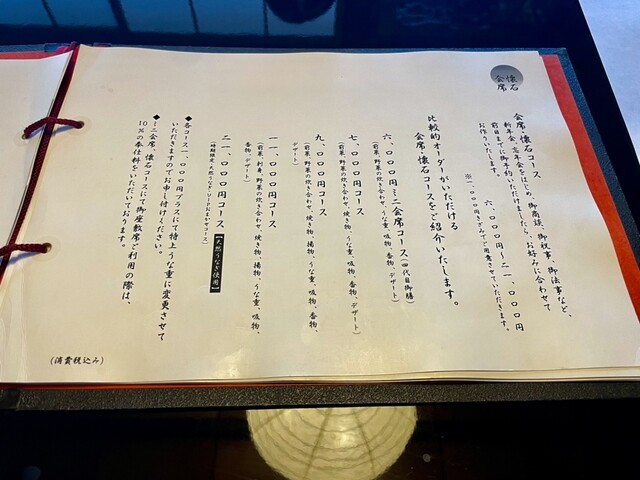 懐石
会席
会席・懐石コース
新年会、忘年会をはじめ、御商談、御祝事、御法事など、
前日までに御予約いただけましたら、お好みに合わせて
お作りいたします。
六、〇〇〇円～二一、〇〇〇円
※一、〇〇〇円きざみでご用意させていただきます。
比較的オーダーがいただける
会席・懐石コースをご紹介いたします。
六、〇〇〇円ミニ会席コース(四代目御膳)
(前菜、野菜の炊き合わせ、うな重、吸物、香物、デザート)
七、〇〇〇円コース
(前菜、野菜の炊き合わせ、焼き物、うな重、吸物、香物、デザート)
九、〇〇〇円コース
(前菜、野菜の炊き合わせ、焼き物、揚物、うな重、吸物、香物、
デザート)
一一、〇〇〇円コース
(前菜、刺身、野菜の炊き合わせ、焼き物、揚物、うな重、吸物、
香物、デザート)
二一、〇〇〇円コース
(時期限定・天然うなぎおまかせコース)【天然うなぎ使用】
◆各コース一、〇〇〇円プラスにて特上うな重に変更させて
いただきますのでお申し付けください。
◆ミニ会席、懐石コースにて御座敷席ご利用の際は、
10%の奉仕料をいただいております。
(消費税込み)